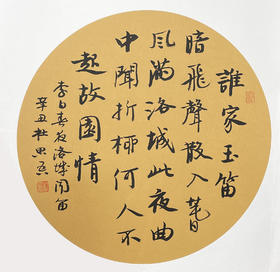 誰家玉笛
暗飛聲散入春
風滿洛城此夜曲
中聞折柳何人不
起故園情
李白春夜洛城聞笛
辛丑杜思